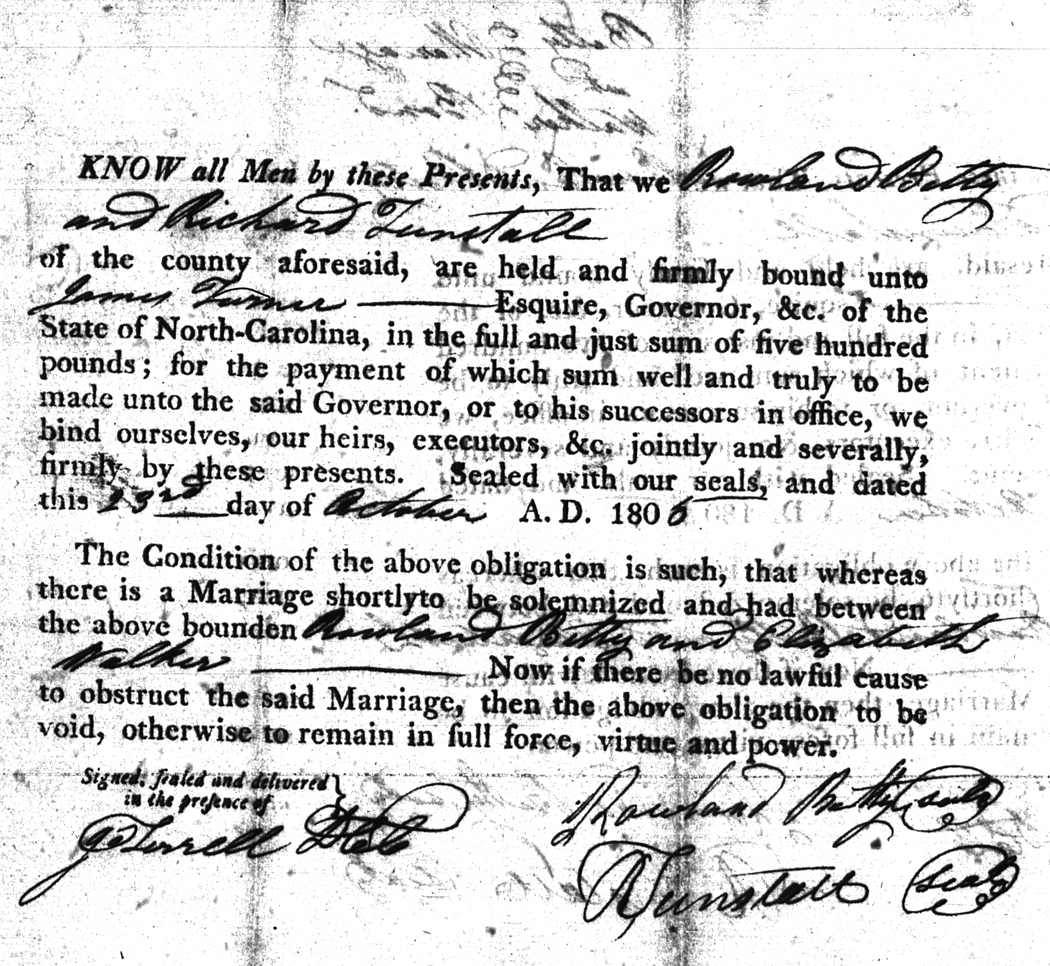 KNOW all Men by these Presents, That we Rowland Betty
and Richard Tunstall
of the county aforesaid, are held and firmly bound unto
James Turner Esquire, Governor, &c. of the
State of North-Carolina, in the full and just sum of five hundred
pounds; for the payment of which sum well and truly to be
made unto the said Governor, or to his successors in office, we
bind ourselves, our heirs, executors, &c. jointly and severally,
firmly by these presents. Sealed with our seals, and dated
this 23rd day of October A. D. 1806
The Condition of the above obligation is such, that whereas
there is a Marriage shortlyto be solemnized and had between
the above bounden Rowland Betty and Elizabeth
Walker Now if there be no lawful cause
to obstruct the said Marriage, then the above obligation to be
void, otherwise to remain in full force, virtue and power.
Signed, ſealed and delivered
in the preſence of
Rowland Betty seal
Terrell
R Tunstall seal